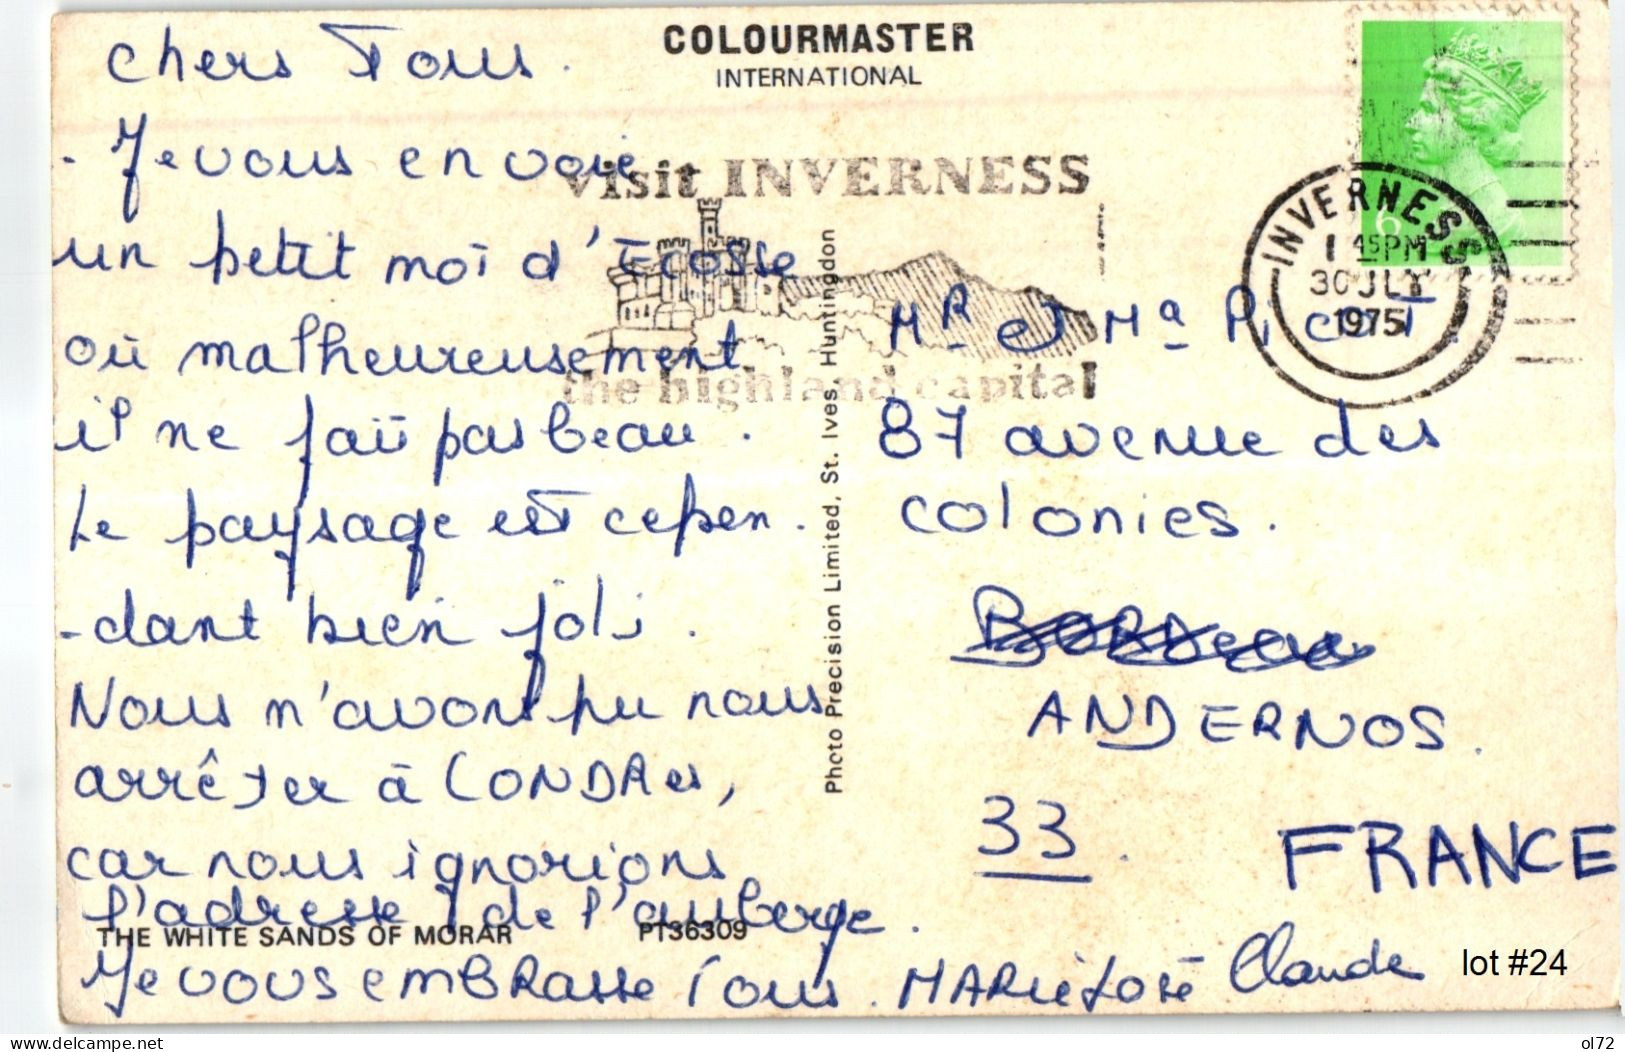 COLOURMASTER
INTERNATIONAL
Chers Tous.
- Je vous envoie
un petit moi d'Ecosse
où malheureusement
il ne fait pas beau.
Le paysage est cepen.
-dant bien joli.
Nous n'avons pu nous
arrêter à LONDRes,
car nous ignorions
l'adresse de l'auberge.
Je vous emBRasse Tous. MARieJosé Claude
THE WHITE SANDS OF MORAR PT36309
Photo Precision Limited, St. Ives, Huntingdon
visit INVERNESS
the highland capital
INVERNESS
1 45PM
30 JLY
1975
6
MR et Ma Picot.
87 avenue des
colonies.
BORDeaux
ANDERNOS.
33.
FRANCE
lot #24
delcampe.net
ol72